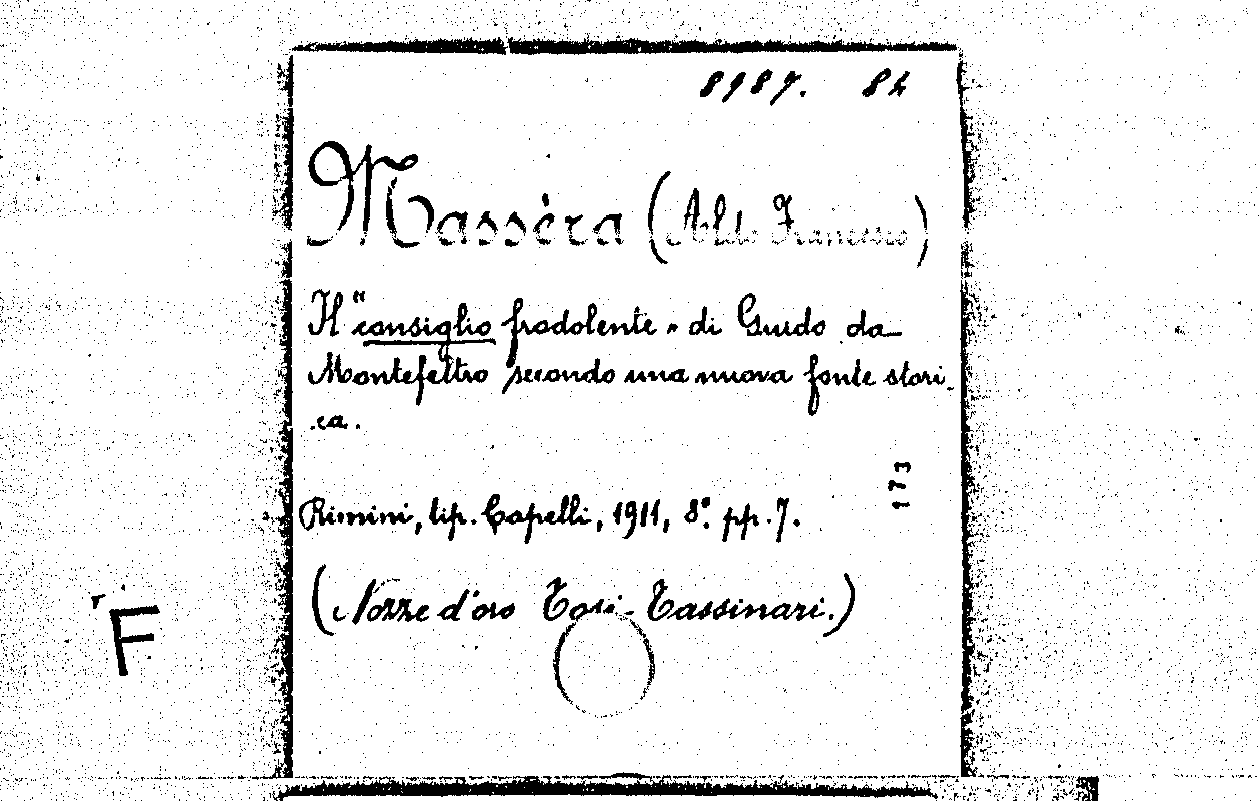 8987. 82
Massèra (Aldo Francesco)
Il "consiglio frodolente" di Guido da
Montefeltro secondo una nuova fonte stori-
ca.
173
Rimini, tip. Capelli, 1911, 8º. pp. 7.
(Nozze d'oro Tosi-Tassinari.)
F